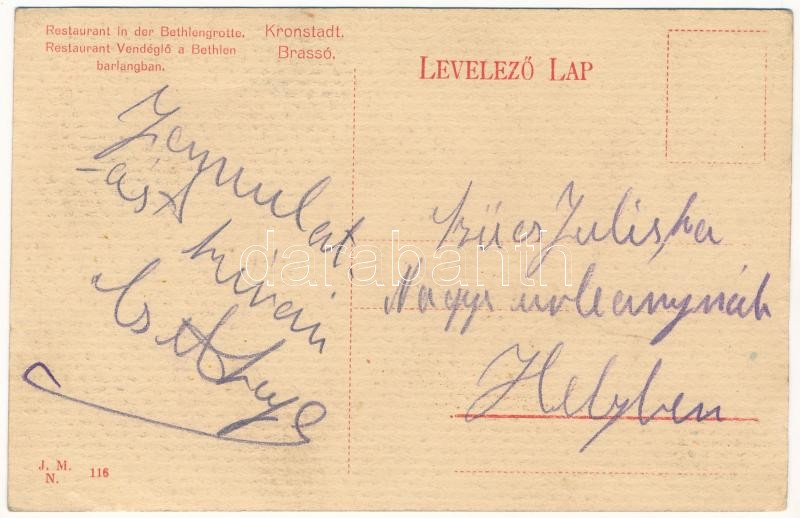 Restaurant in der Bethlengrotte.
Restaurant Vendéglő a Bethlen
barlangban.
Kronstadt.
Brassó.
LEVELEZŐ LAP
Jó mulat
-ást kíván
Szűcs Juliska
Nagys urleánynak
Helyben
darabanth
J. M.
N. 116